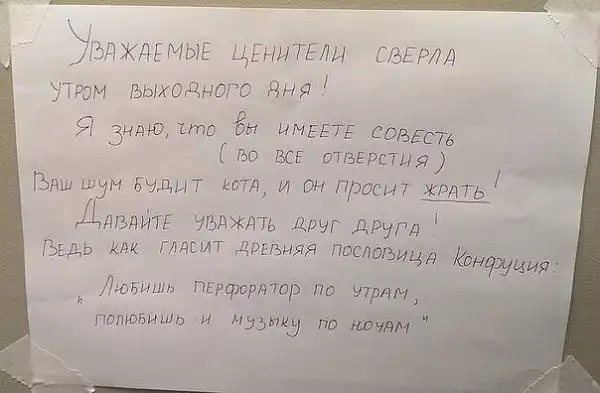 Уважаемые ценители сверла
утром выходного дня!
Я знаю, что вы имеете совесть
(во все отверстия)
Ваш шум будит кота, и он просит жрать!
Давайте уважать друг друга!
Ведь как гласит древняя пословица Конфуция:
„Любишь перфоратор по утрам,
полюбишь и музыку по ночам"